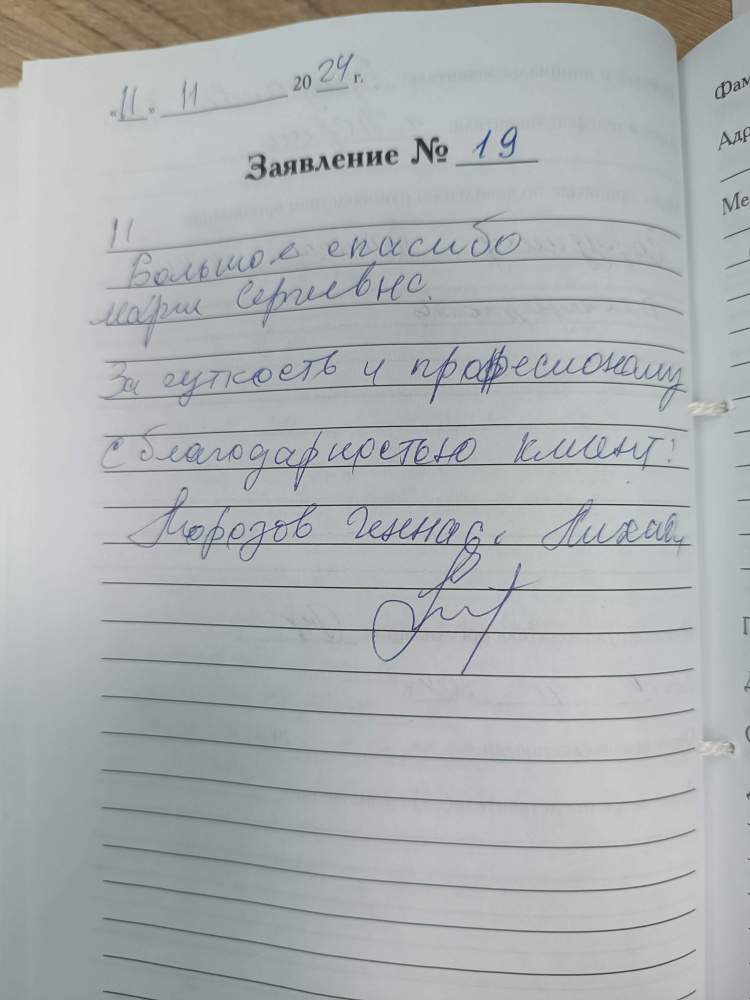 «11» 11 2024 г.
Заявление № 19
11
Большое спасибо
Марии Сергиевне.
За чуткость и професионому
С благодарностью клиент:
Морозов Геннад. Михай.
Фам
Адр
Ме